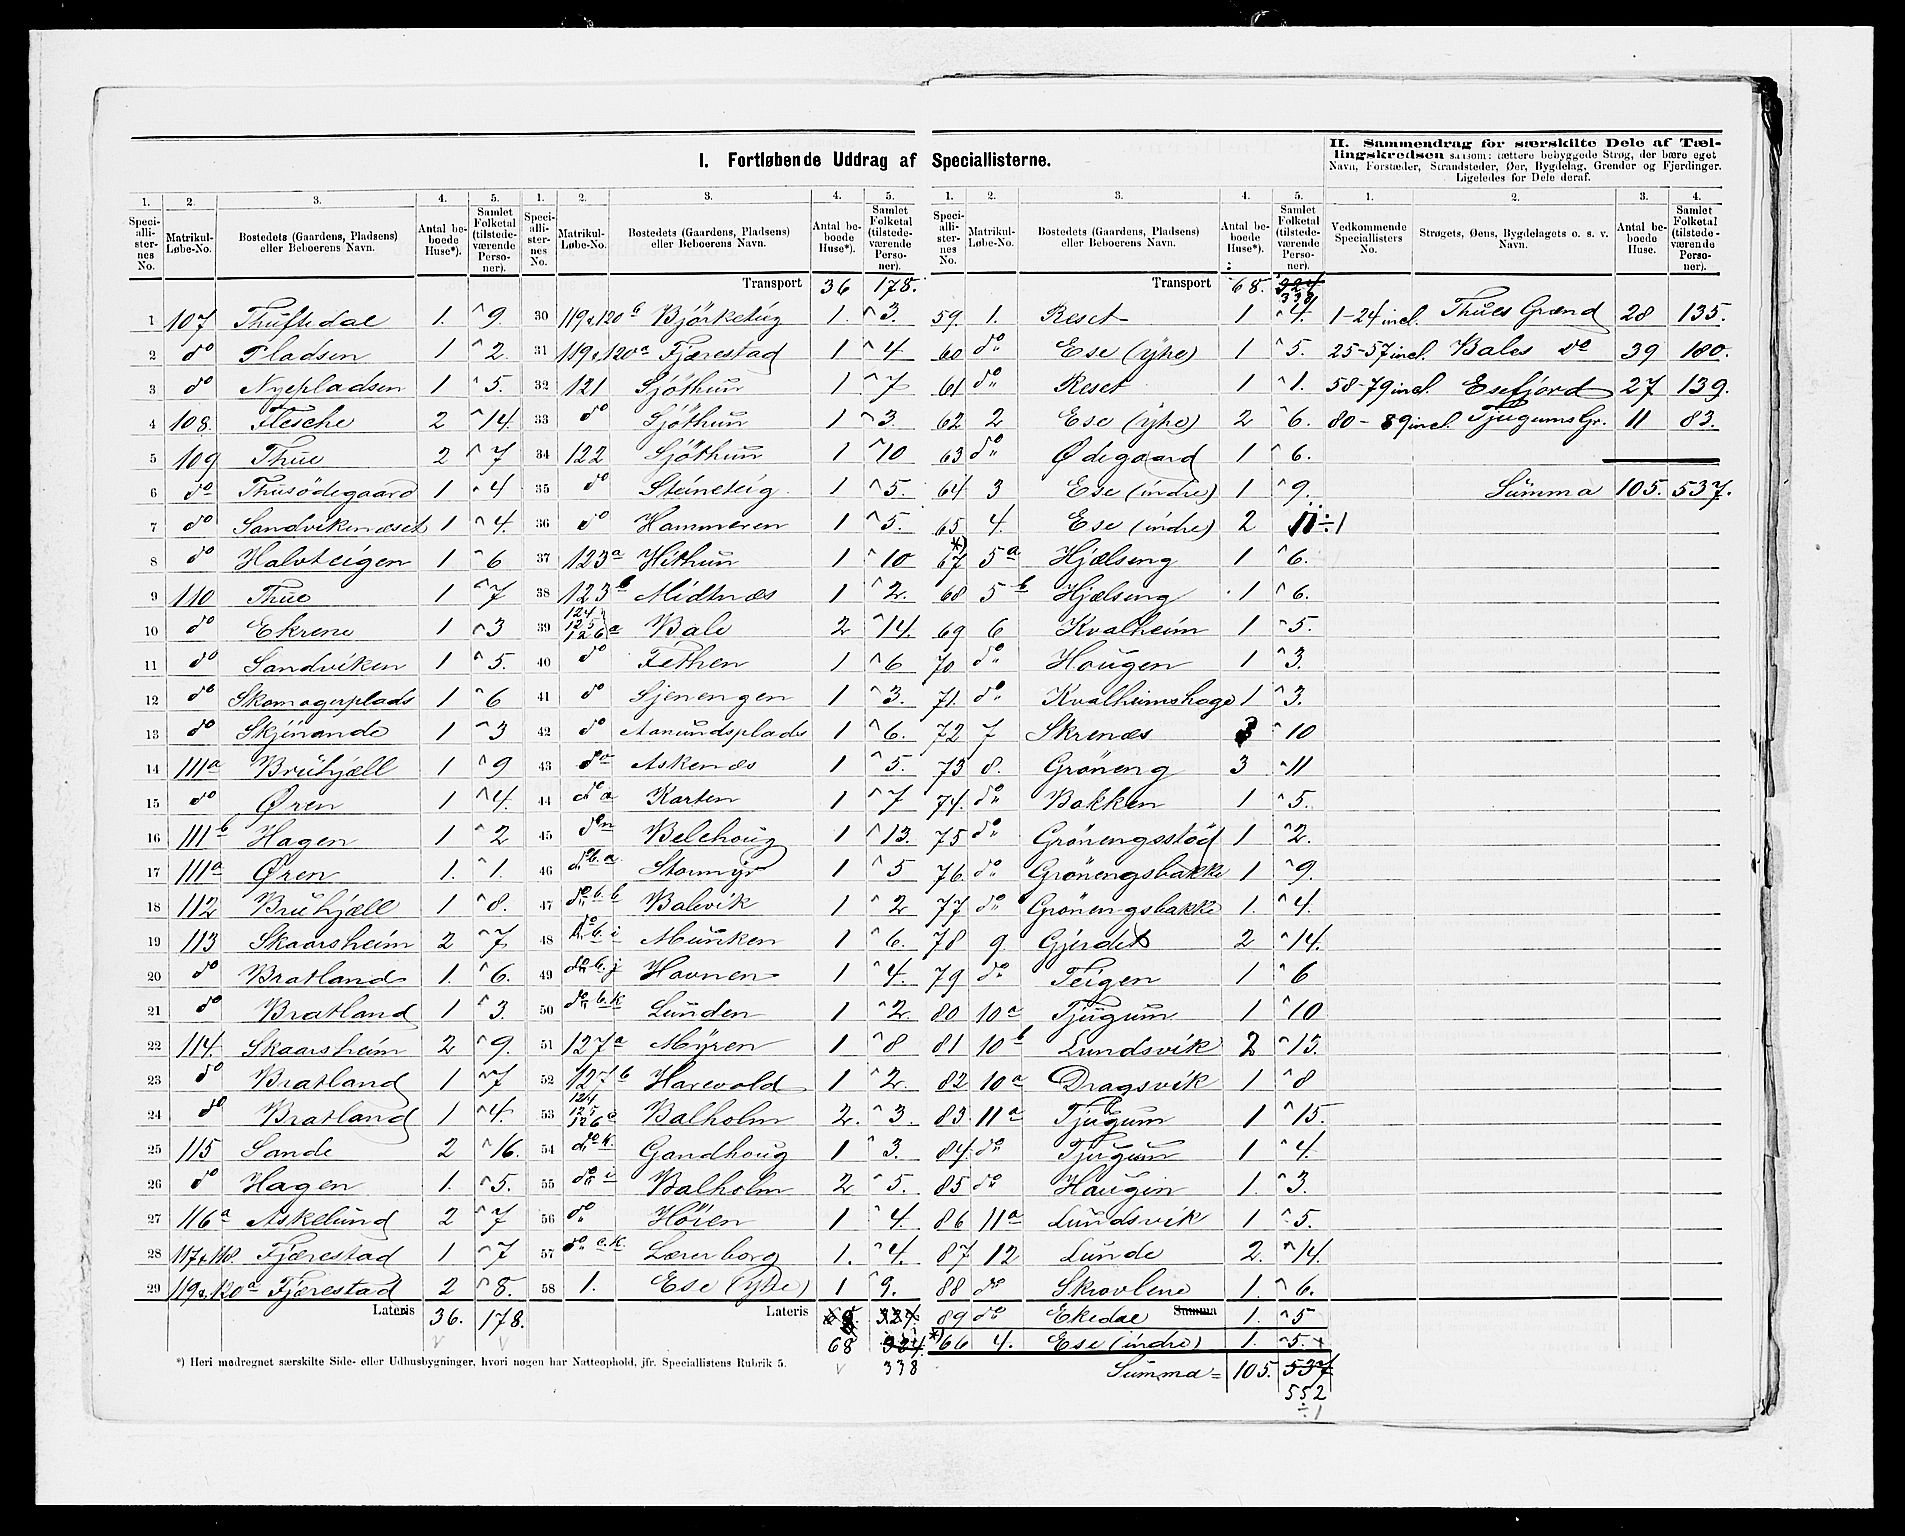 I. Fortløbende Uddrag af Speciallisterne.
II. Sammendrag for særskilte Dele af Tællingskredsen saasom: tættere bebyggede Strøg, der bære eget Navn, Forstæder, Strandsteder, Øer, Bygdelag, Grender og Fjerdinger. Ligeledes for Dele deraf.
1. 2. 3. 4. 5. 1. 2. 3. 4. 5. 1. 2. 3. 4. 5. 1. 2. 3. 4.
Speciallisternes No. Matrikul-Løbe-No. Bostedets (Gaardens, Pladsens) eller Beboerens Navn. Antal beboede Huse*). Samlet Folketal (tilstedeværende Personer).
Speciallisternes No. Matrikul-Løbe-No. Bostedets (Gaardens, Pladsens) eller Beboerens Navn. Antal beboede Huse*). Samlet Folketal (tilstedeværende Personer).
Speciallisternes No. Matrikul-Løbe-No. Bostedets (Gaardens, Pladsens) eller Beboerens Navn. Antal beboede Huse*). Samlet Folketal (tilstedeværende Personer).
Vedkommende Speciallisters No. Strøgets, Øens, Bygdelagets o. s. v. Navn. Antal beboede Huse. Samlet Folketal (tilstedeværende Personer).
1 107 Thuftedal 1. 9.
2 do Pladsen 1 2.
3 do Nyepladsen 1 5.
4 108. Flesche 2 14.
5 109 Thue 2 7
6 do Thusödegaard 1 4
7 do Sandvikenæset 1 4.
8 do Halvteigen 1 6
9 110 Thue 1 7
10 do Ekrene 1 3
11 do Sandviken 1 5.
12 do Skomagerplads 1 6
13 do Skjérande 1 3
14 111a Bruhjæll 1 9
15 do Øren 1 4.
16 111b Hagen 1 2
17 111a Øren 1. 1.
18 112 Bruhjæll 1 8.
19 113 Skaarsheim 2 7
20 do Bratland 1. 6.
21 do Bratland 1 3.
22 114. Skaarsheim 2 9.
23 do Bratland 1 7
24 do Bratland 1 4.
25 115 Sande 2 16.
26 do Hagen 1. 5.
27 116a Askelund 2 7
28 117&118. Fjærestad 1 7
29 119&120a Fjærestad 2 8.
Lateris 36. 178.
Transport 36 178.
30 119&120b Björketeig 1. 3.
31 119&120a Fjærestad 1 4
32 121 Sjöthun 1 7
33 do Sjöthun 1 3.
34 122 Sjöthun 1 10
35 do Steineteig 1 5.
36 do Hammeren 1 5.
37 123a Hithun 1 10
38 123b Midtnæs 1 2.
39 124 125 126a Bale 2 14.
40 do Fethen 1 6
41 do Sjenengen 1 3.
42 do Aamundsplads 1 6.
43 do Askenæs 1 5.
44 do a Karten 1 7
45 do Belehoug 1 13.
46 do b.a. Stormyr 1 5
47 do b.b Balevik 1 2
48 do b.i Munken 1 6.
49 do b.j Havnen 1 4.
50 do b.k Lunden 1 2.
51 127a Myren 1 8
52 127b Harevold 1 2.
53 124 125 126 Balholm 2. 3.
54 do k. Gandhoug 1 3.
55 do i Balholm 2 5.
56 do Höien 1 4.
57 do c.k. Lærerborg 1. 4.
58 1. Ese (ytre) 1 9.
Lateris 324
68 324
338
Transport 68. 324
338
59. 1. Reset 1 4.
60 do Ese (ytre) 1 5.
61 do Reset 1 1.
62 2 Ese (ytre) 2 6.
63 do Ødegaard 1 6.
64 3 Ese (indre) 1 9.
65 4. Ese (indre) 2 11÷1
*) 67 5a Hjælseng 1 6.
68 5b Hjælseng 1 6.
69 6 Kvalheim 1 5.
70 do Haugen 1 3.
71. do Kvalheimshage 1 3.
72 7 Skrenæs 3 10
73 8. Gröneng 3 11
74. do Bakken 1 5.
75 do Grönengsstöd 1 2.
76. do Grönengsbakke 1 9.
77 do Grönengsbakke 1. 4.
78 9 Gjerdet 2 14.
79 do Teigen 1 6
80 10a Tjugum 1 10
81 10b Lundsvik 2 13.
82 10a Dragsvik 1 8
83 11a Tjugum 1 15.
84. do Tjugum 1 4.
85 do Haugen 1. 3.
86 11a Lundsvik 1 5.
87 12 Lunde 2. 14.
88 do Skrovlene 1. 6.
89 do Ekedal Summa 1. 5
*) 66 4. Ese (indre) 1. 5.
Summa = 105. 537
552
÷1
1-24 incl. Thues Grænd 28 135.
25-57 incl. Bales do 39 180.
58-79 incl. Esefjord 27 139.
80-89 incl. Tjugums Gr. 11 83.
Summa 105. 537.
*) Heri medregnet særskilte Side- eller Udhusbygninger, hvori nogen har Natteophold, jfr. Speciallistens Rubrik 5.